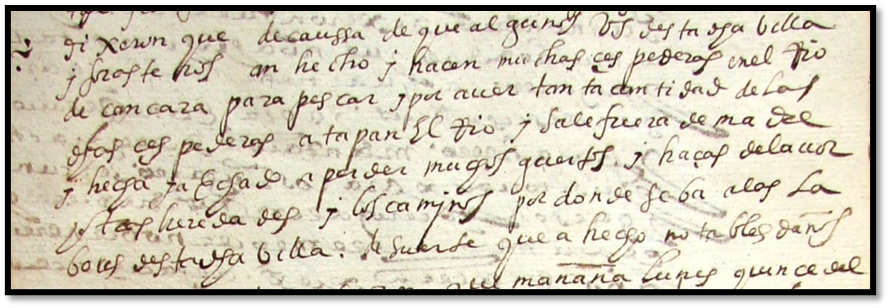 dixeron que de caussa de que algunos Vºs desta dsa billa
y forasteros an hecho y hacen muchas cespederas en el Rio
de cancara para pescar y por aver tanta cantidad de las
dhas cespederas atapan El Rio y sale fuera de madre
y hecha a perder muchos guertos y haças de lavor
y otras heredades y los caminos por donde se ba a las la
bores desta dsa billa. de suerte que a hecho notables daños
mañana lunes quince del